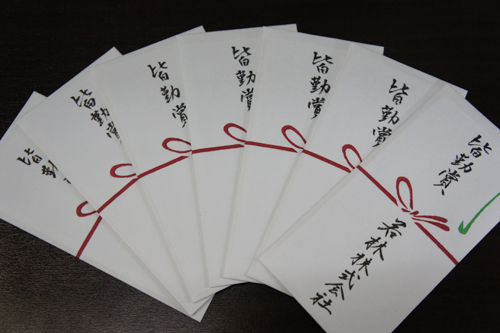 皆勤賞
皆勤賞
皆勤賞
皆勤賞
皆勤賞
皆勤賞
皆勤賞
若林株式会社